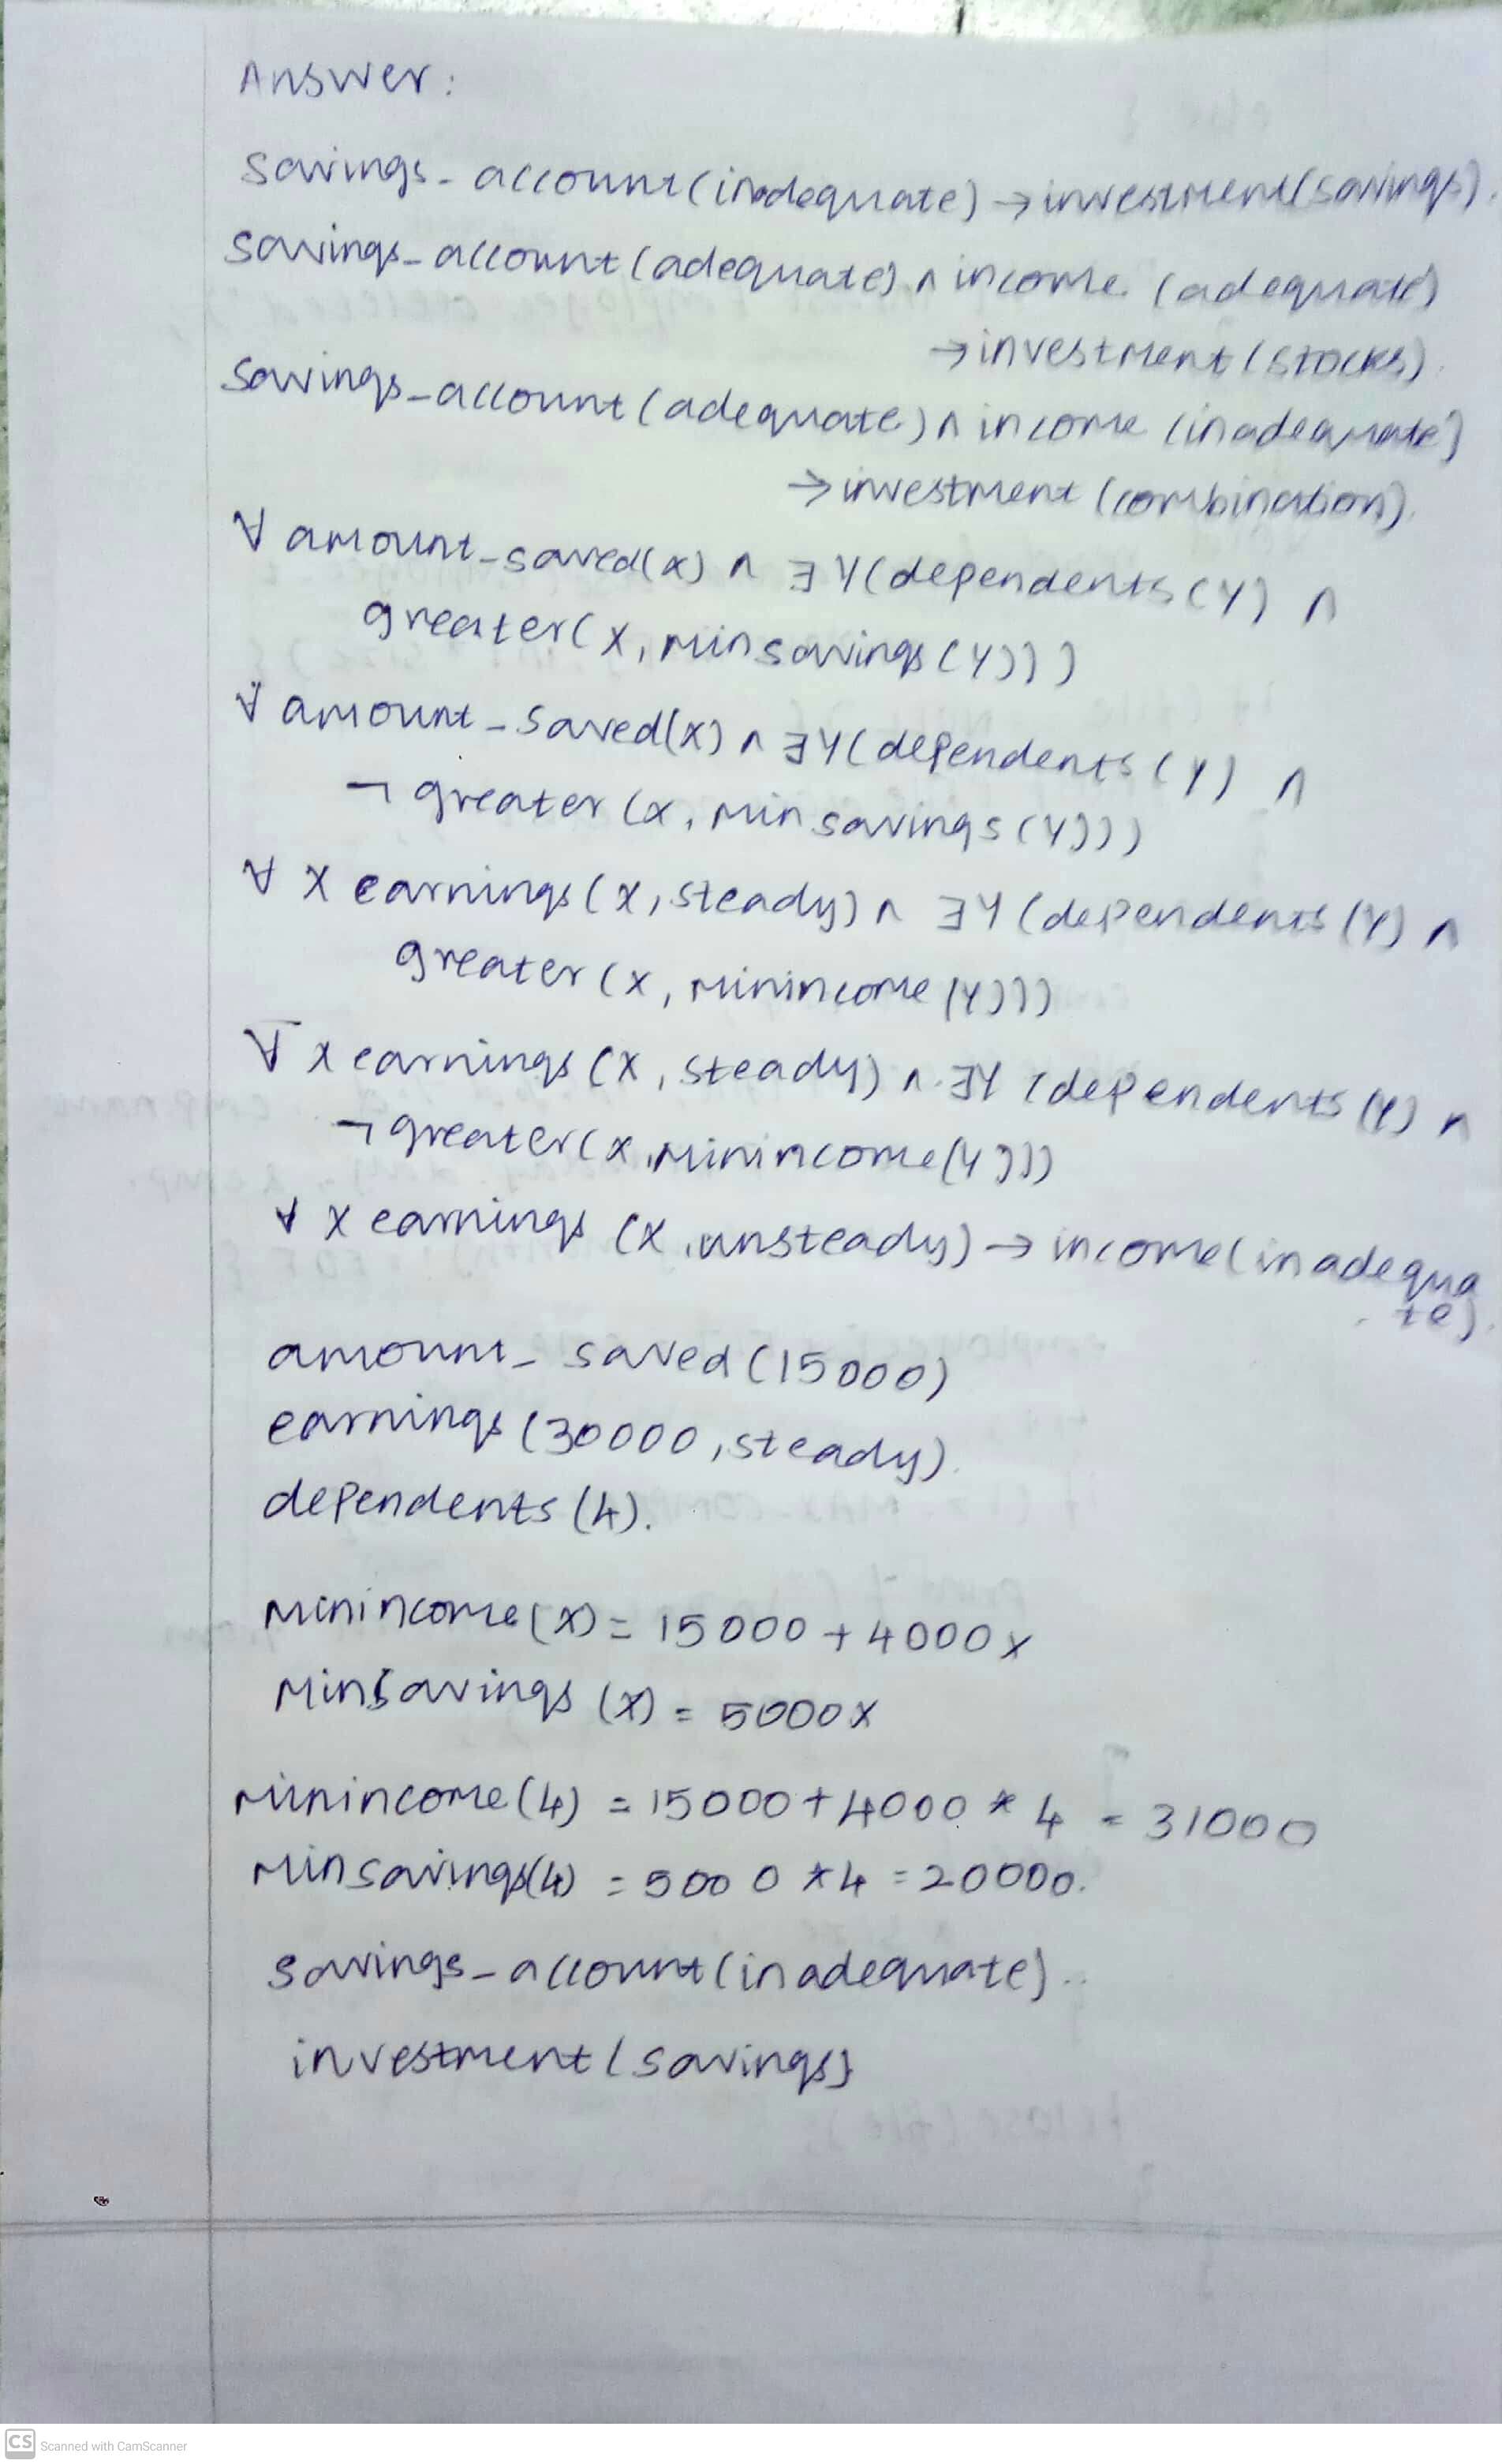 Answer:
Savings-account(inadequate) → investment(savings).
Savings-account(adequate) ∧ income (adequate)
→ investment (stocks).
Savings-account (adequate) ∧ income (inadequate)
→ investment (combination).
∀ amount-saved(x) ∧ ∃ Y(dependents (Y) ∧
greater(x, minsavings(Y)))
∀ amount-saved(x) ∧ ∃Y(dependents (Y) ∧
¬ greater (x, minsavings(Y)))
∀ X earnings(x, steady) ∧ ∃Y (dependents (Y) ∧
greater (x, minincome(Y)))
∀ x earnings (x, steady) ∧ ∃Y (dependents (Y) ∧
¬ greater(x, minincome(Y)))
∀ x earnings (x, unsteady) → income(inadequa
te).
amount-saved (15000)
earnings (30000, steady).
dependents (4).
minincome(x) = 15000 + 4000x
MinSavings (x) = 5000x
minincome(4) = 15000 + 4000 * 4 = 31000
Minsavings(4) = 5000 * 4 = 20000.
savings-account(inadequate)..
investment(savings)
CS Scanned with CamScanner